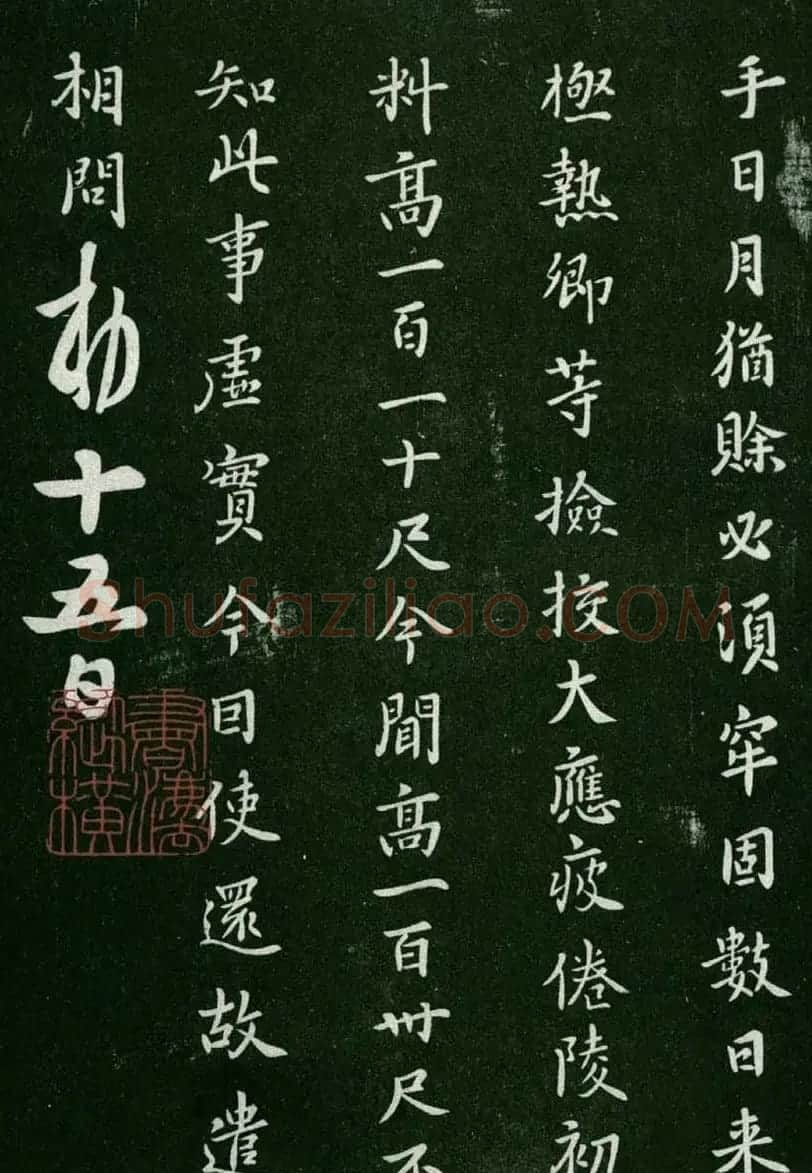 手日月猶賒必須牢固數日来
極熱卿等撿挍大應疲倦陵初
料高一百一十尺今聞高一百卅尺不
知此事虛實今因使還故遣
相問勑十五日
Shufaziliao.COM
書法縱橫